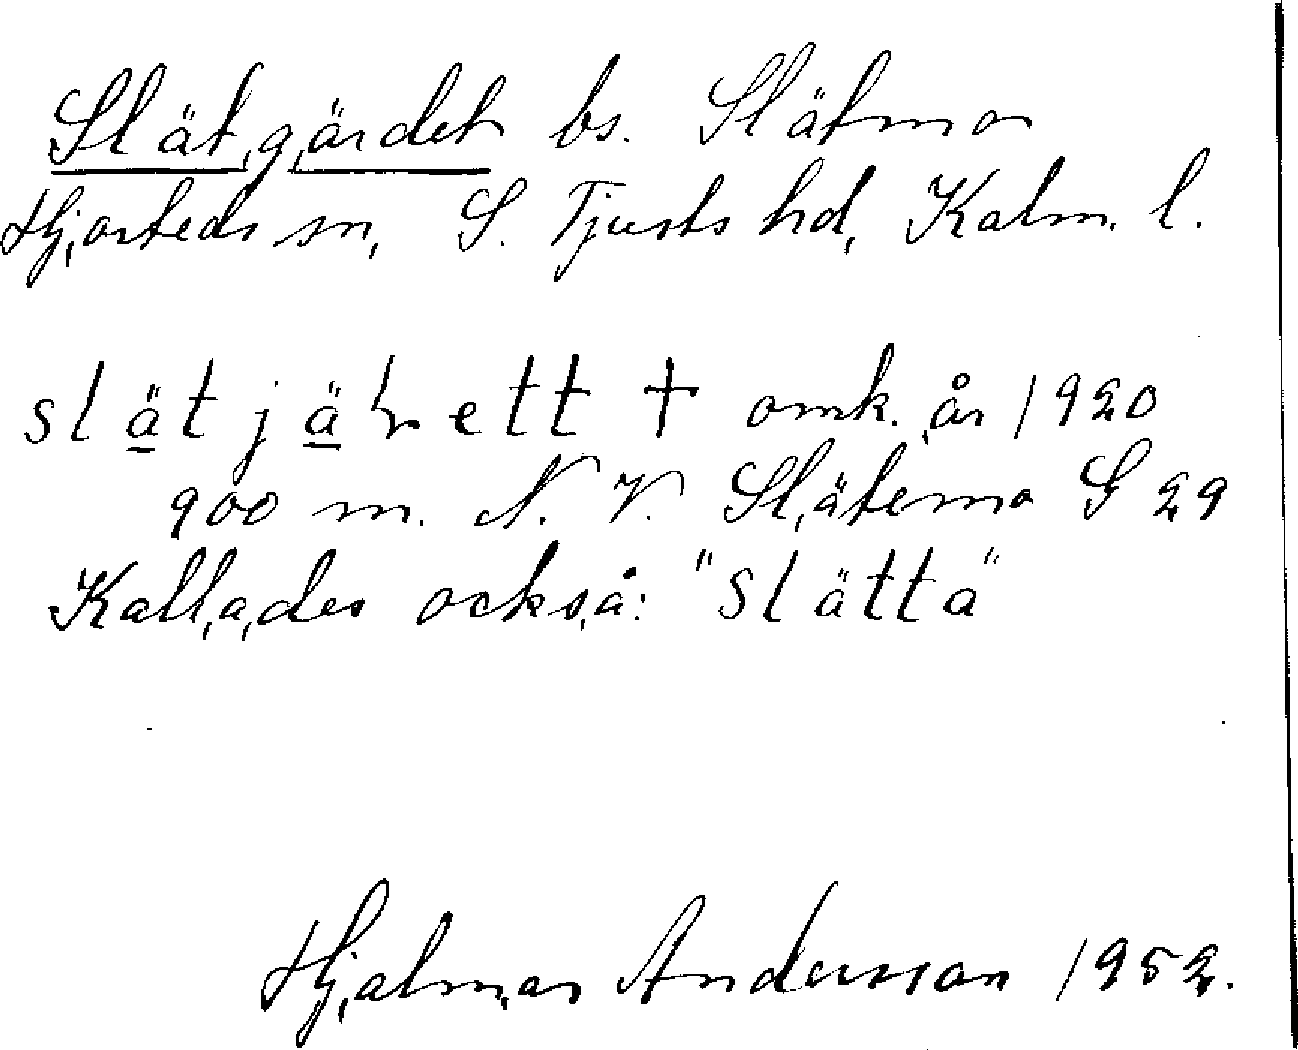 Slätgärdet bs. Slätmo
Hjorteds sn, S. Tjusts hd, Kalm. l.
slät jä ett † omk. år 1920
900 m. N. V. Slätemo G 29
Kallades också: "slätta"
Hjalmar Andersson 1952.